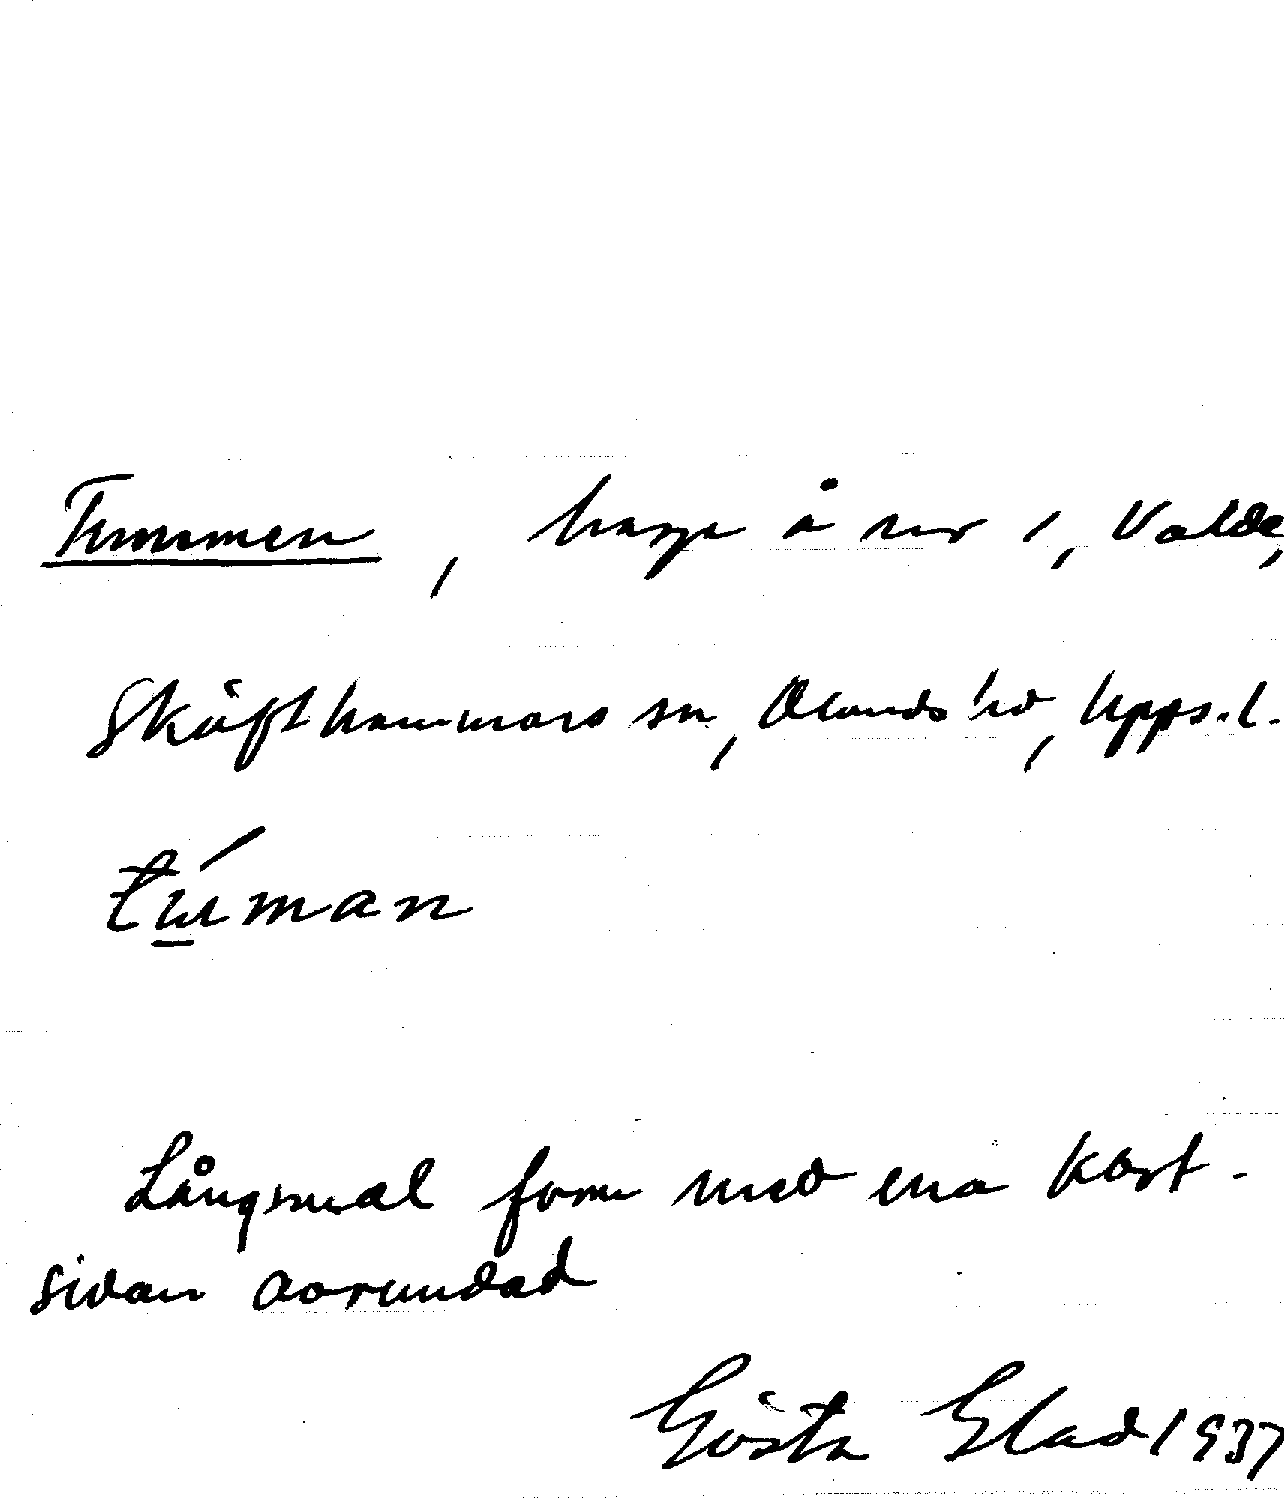 Tummen, hage å nr 1, Valde,
Skäfthammars sn, Olands hd, Upps. l.
túman
Långsmal form med ena kort-
sidan avrundad
Gösta Glad 1937